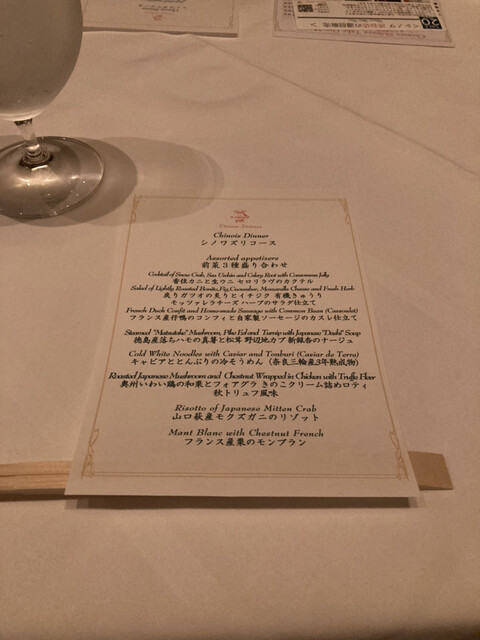 Chinois Dinner
シノワズリコース
Assorted appetisers
前菜３種盛り合わせ
Cocktail of Snow Crab, Sea Urchin and Celery Root with Consomme Jelly
香住カニと生ウニ セロリラヴのカクテル
Salad of Lightly Roasted Bonito, Fig, Cucumber, Mozzarella Cheese and Fresh Herb
戻りガツオの炙りとイチジク 有機きゅうり
モッツァレラチーズ ハーブのサラダ仕立て
French Duck Confit and Home-made Sausage with Common Bean (Cassoulet)
フランス産仔鴨のコンフィと自家製ソーセージのカスレ仕立て
Steamed "Matsutake" Mushroom, Pike Eel and Turnip with Japanese "Dashi" Soup
徳島産落ちハモの真薯と松茸 野辺地カブ 新銀杏のナージュ
Cold White Noodles with Caviar and Tonburi (Caviar de Terra)
キャビアととんぶりの冷そうめん（奈良三輪産3年熟成物）
Roasted Japanese Mushroom and Chestnut Wrapped in Chicken with Truffle Flaor
奥州いわい鶏の和栗とフォアグラ きのこクリーム詰めロティ
秋トリュフ風味
Risotto of Japanese Mitten Crab
山口萩産モクズガニのリゾット
Mant Blanc with Chestnut French
フランス産栗のモンブラン